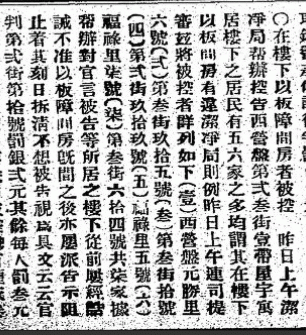 〇在樓下以板障間房者被控　昨日上午潔
凈局帮辦控告西營盤第弍叁街壹帶屋宇寓
居樓下之居民有五六家之多均謂其在樓下
以板間房有違潔凈局則例昨日上午連司提
審茲將被控者群列如下(壹)西營盤元勝里
六號(弍)第叁街玖拾五號(叁)第叁街拾號
(四)第弍街玖拾玖號(五)福祿里五號(六)
福祿里柒號(柒)第叁街六拾四號共柒家據
帮辦對官言被告等所居之樓下從前屢經
誡不准以板障間房旣間之後亦屢派告示阻
止着其刻日拆清不想被告視爲具文云云官
判第弍街第拾號罰銀弍元其餘每人罰叁元